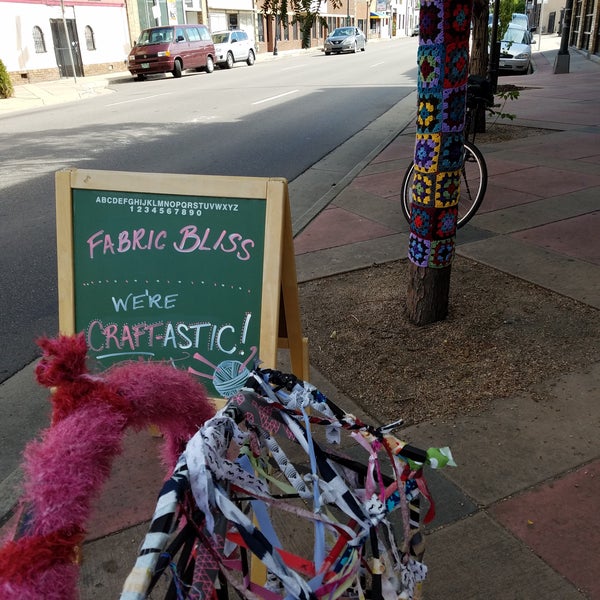 ABCDEFGHIJKLMNOPQRSTUVWXYZ
1234567890
FABRIC BLISS
WE'RE
CRAFT-ASTIC!